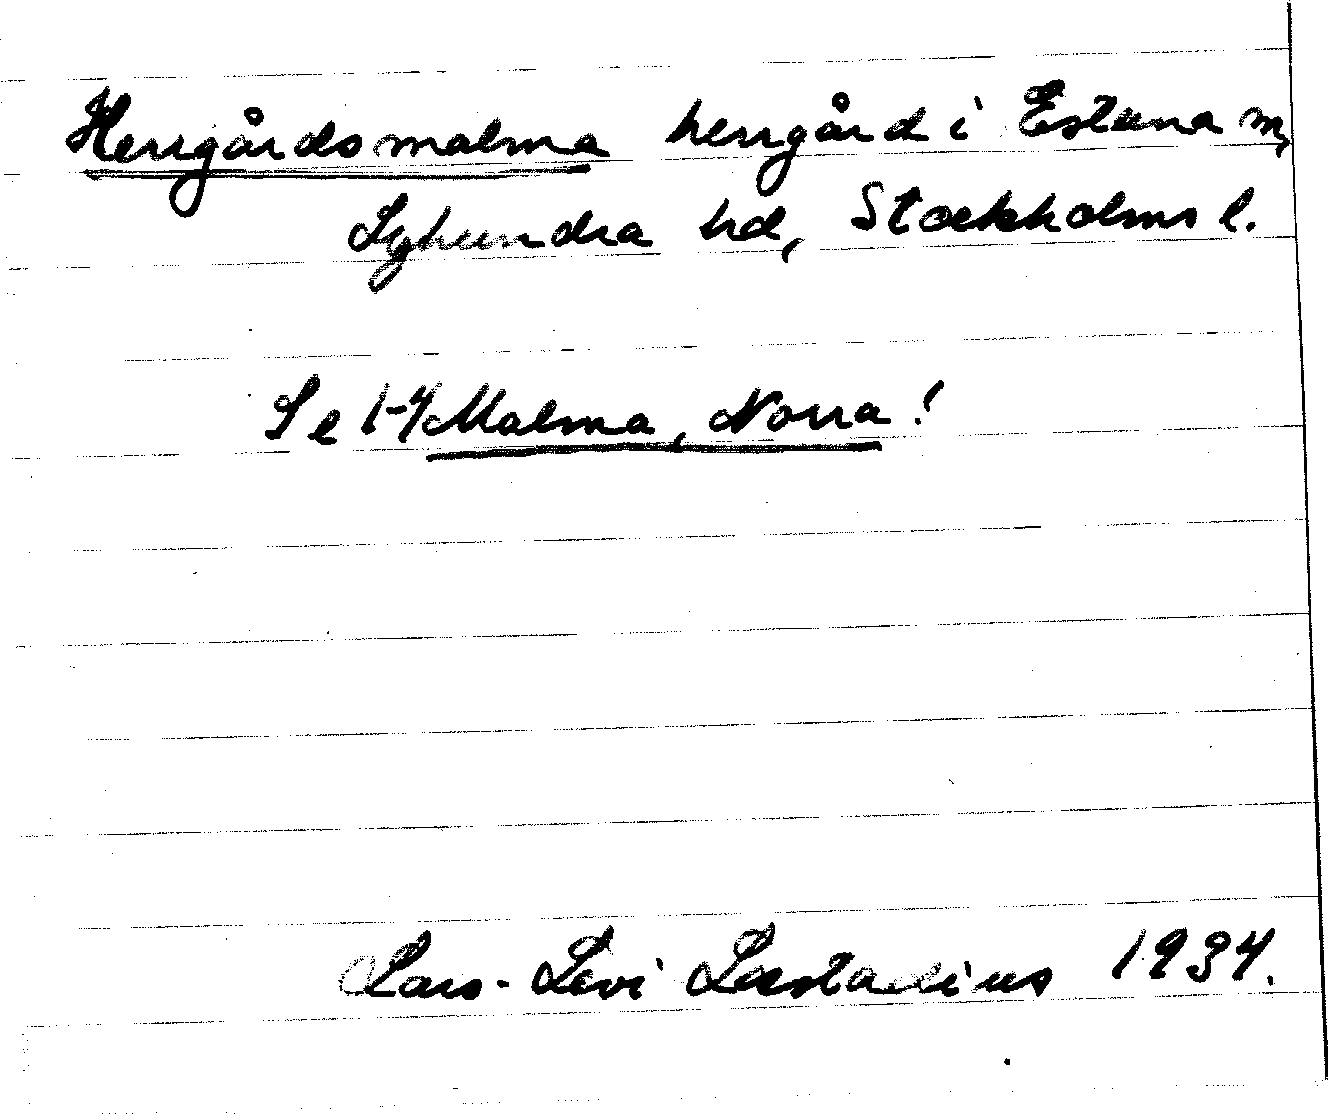 Herrgårdsmalma herrgård i Estuna sn,
Lyhundra hd, Stockholms l.
Se 1-4 Malma, Norra!
Lars-Levi Læstadius 1934.